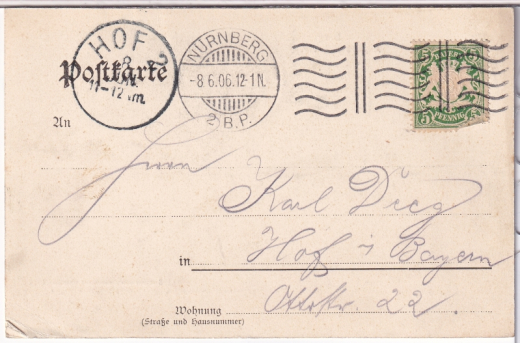 HOF 2
8
JUN.
11-12 Vm.
NÜRNBERG
-8.6.06.12-1N.
2 B.P.
5 BAYERN 5
5 PFENNIG 5
Postkarte
An
Herrn
Karl Dieg
in Hof i Bayern
Wohnung Ottostr. 22.
(Straße und Hausnummer)